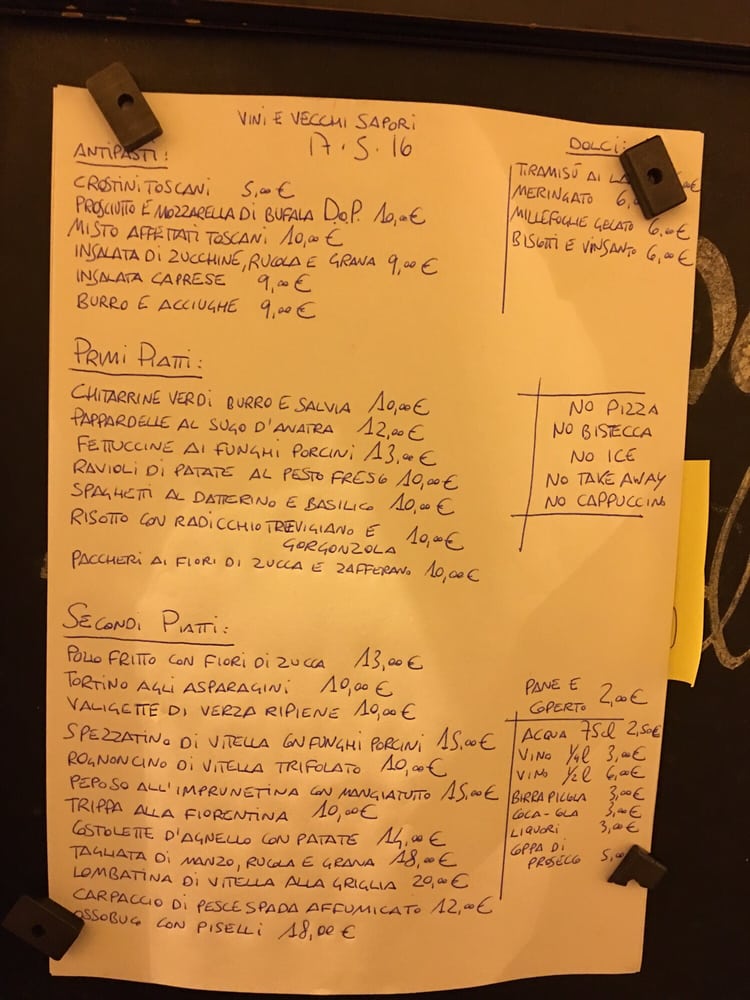 VINI E VECCHI SAPORI
17.5.16
ANTIPASTI:
CROSTINI TOSCANI 5,00 €
PROSCIUTTO E MOZZARELLA DI BUFALA D.O.P. 10,00 €
MISTO AFFETTATI TOSCANI 10,00 €
INSALATA DI ZUCCHINE, RUCOLA E GRANA 9,00 €
INSALATA CAPRESE 9,00 €
BURRO E ACCIUGHE 9,00 €
PRIMI PIATTI:
CHITARRINE VERDI BURRO E SALVIA 10,00 €
PAPPARDELLE AL SUGO D'ANATRA 12,00 €
FETTUCCINE AI FUNGHI PORCINI 13,00 €
RAVIOLI DI PATATE AL PESTO FRESCO 10,00 €
SPAGHETTI AL DATTERINO E BASILICO 10,00 €
RISOTTO CON RADICCHIO TREVIGIANO E
GORGONZOLA 10,00 €
PACCHERI AI FIORI DI ZUCCA E ZAFFERANO 10,00 €
SECONDI PIATTI:
POLLO FRITTO CON FIORI DI ZUCCA 13,00 €
TORTINO AGLI ASPARAGINI 10,00 €
VALIGETTE DI VERZA RIPIENE 10,00 €
SPEZZATINO DI VITELLA CON FUNGHI PORCINI 15,00 €
ROGNONCINO DI VITELLA TRIFOLATO 10,00 €
PEPOSO ALL'IMPRUNETINA CON MANGIATUTTO 15,00 €
TRIPPA ALLA FIORENTINA 10,00 €
COSTOLETTE D'AGNELLO CON PATATE 14,00 €
TAGLIATA DI MANZO, RUCOLA E GRANA 18,00 €
LOMBATINA DI VITELLA ALLA GRIGLIA 20,00 €
CARPACCIO DI PESCE SPADA AFFUMICATO 12,00 €
OSSOBUCO CON PISELLI 18,00 €
DOLCI:
TIRAMISÚ AI
MERINGATO 6,0
MILLEFOGLIE GELATO 6,00 €
BISCOTTI E VINSANTO 6,00 €
NO PIZZA
NO BISTECCA
NO ICE
NO TAKE AWAY
NO CAPPUCCINO
PANE E
COPERTO 2,00 €
ACQUA 75cl 2,50 €
VINO 1/4 l 3,00 €
VINO 1/2 l 6,00 €
BIRRA PICCOLA 3,00 €
COCA-COLA 3,00 €
LIQUORI 3,00 €
COPPA DI
PROSECCO 5,00